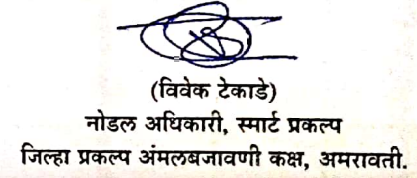 (विवेक टेकाडे)
नोडल अधिकारी, स्मार्ट प्रकल्प
जिल्हा प्रकल्प अंमलबजावणी कक्ष, अमरावती.